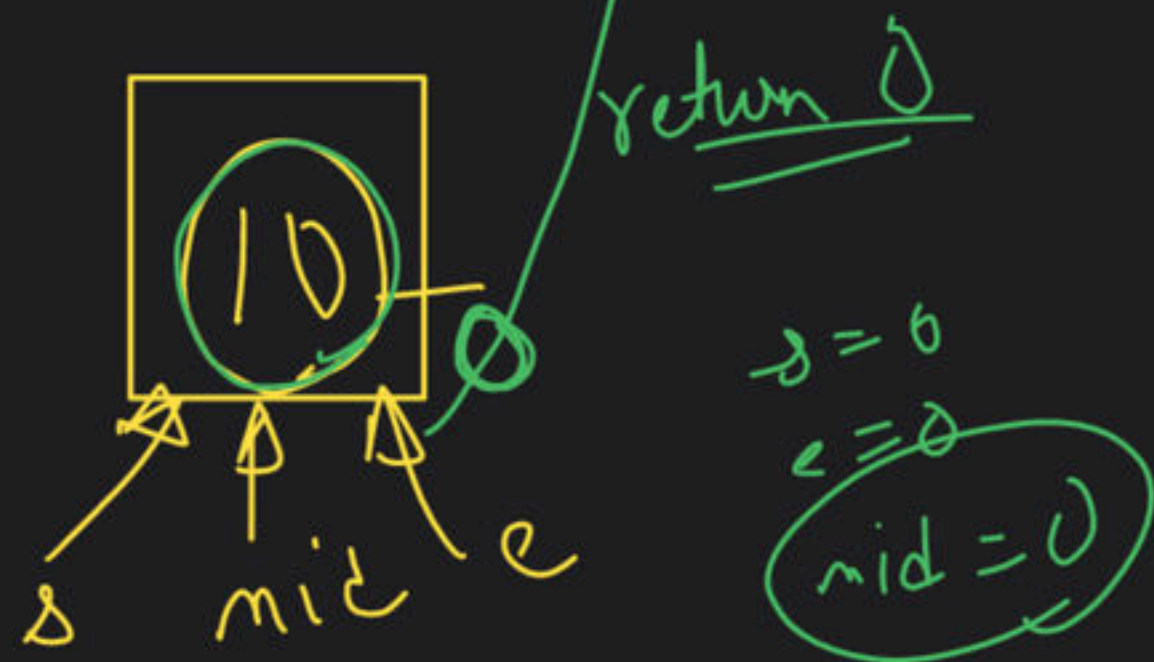 return 0
10
0
s = 0
e = 0
mid = 0
s mid e